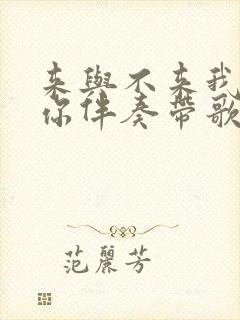 来與不来我
你伴奏帶歌
范麗芳